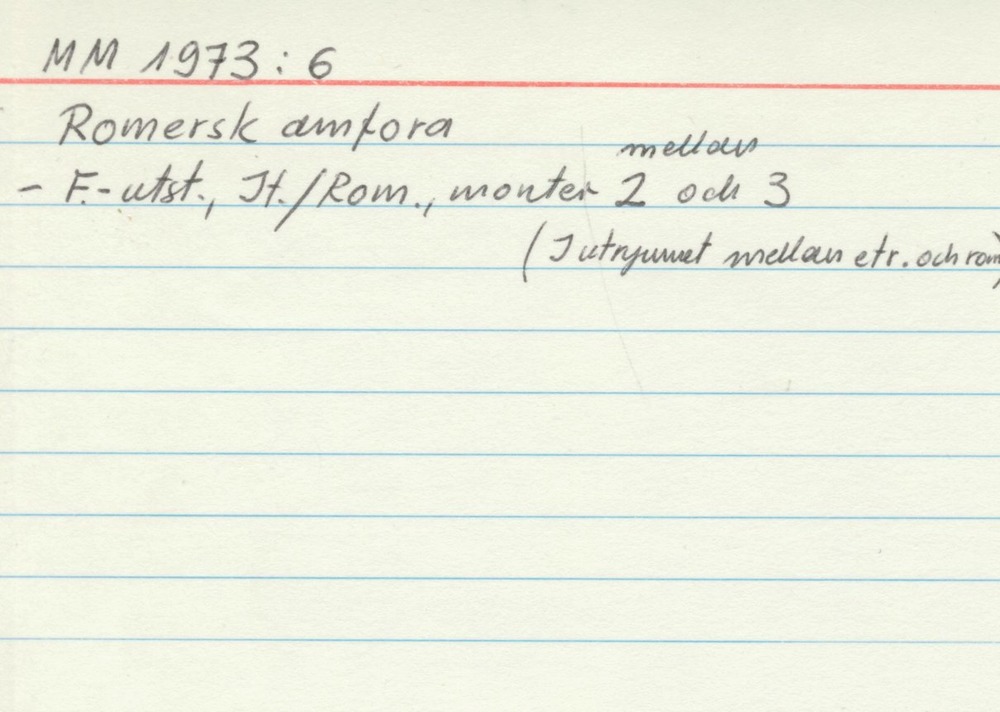 MM 1973:6
Romersk amfora
mellan
- F.-utst., It./Rom., monter 2 och 3
(I utrymmet mellan etr. och rom)